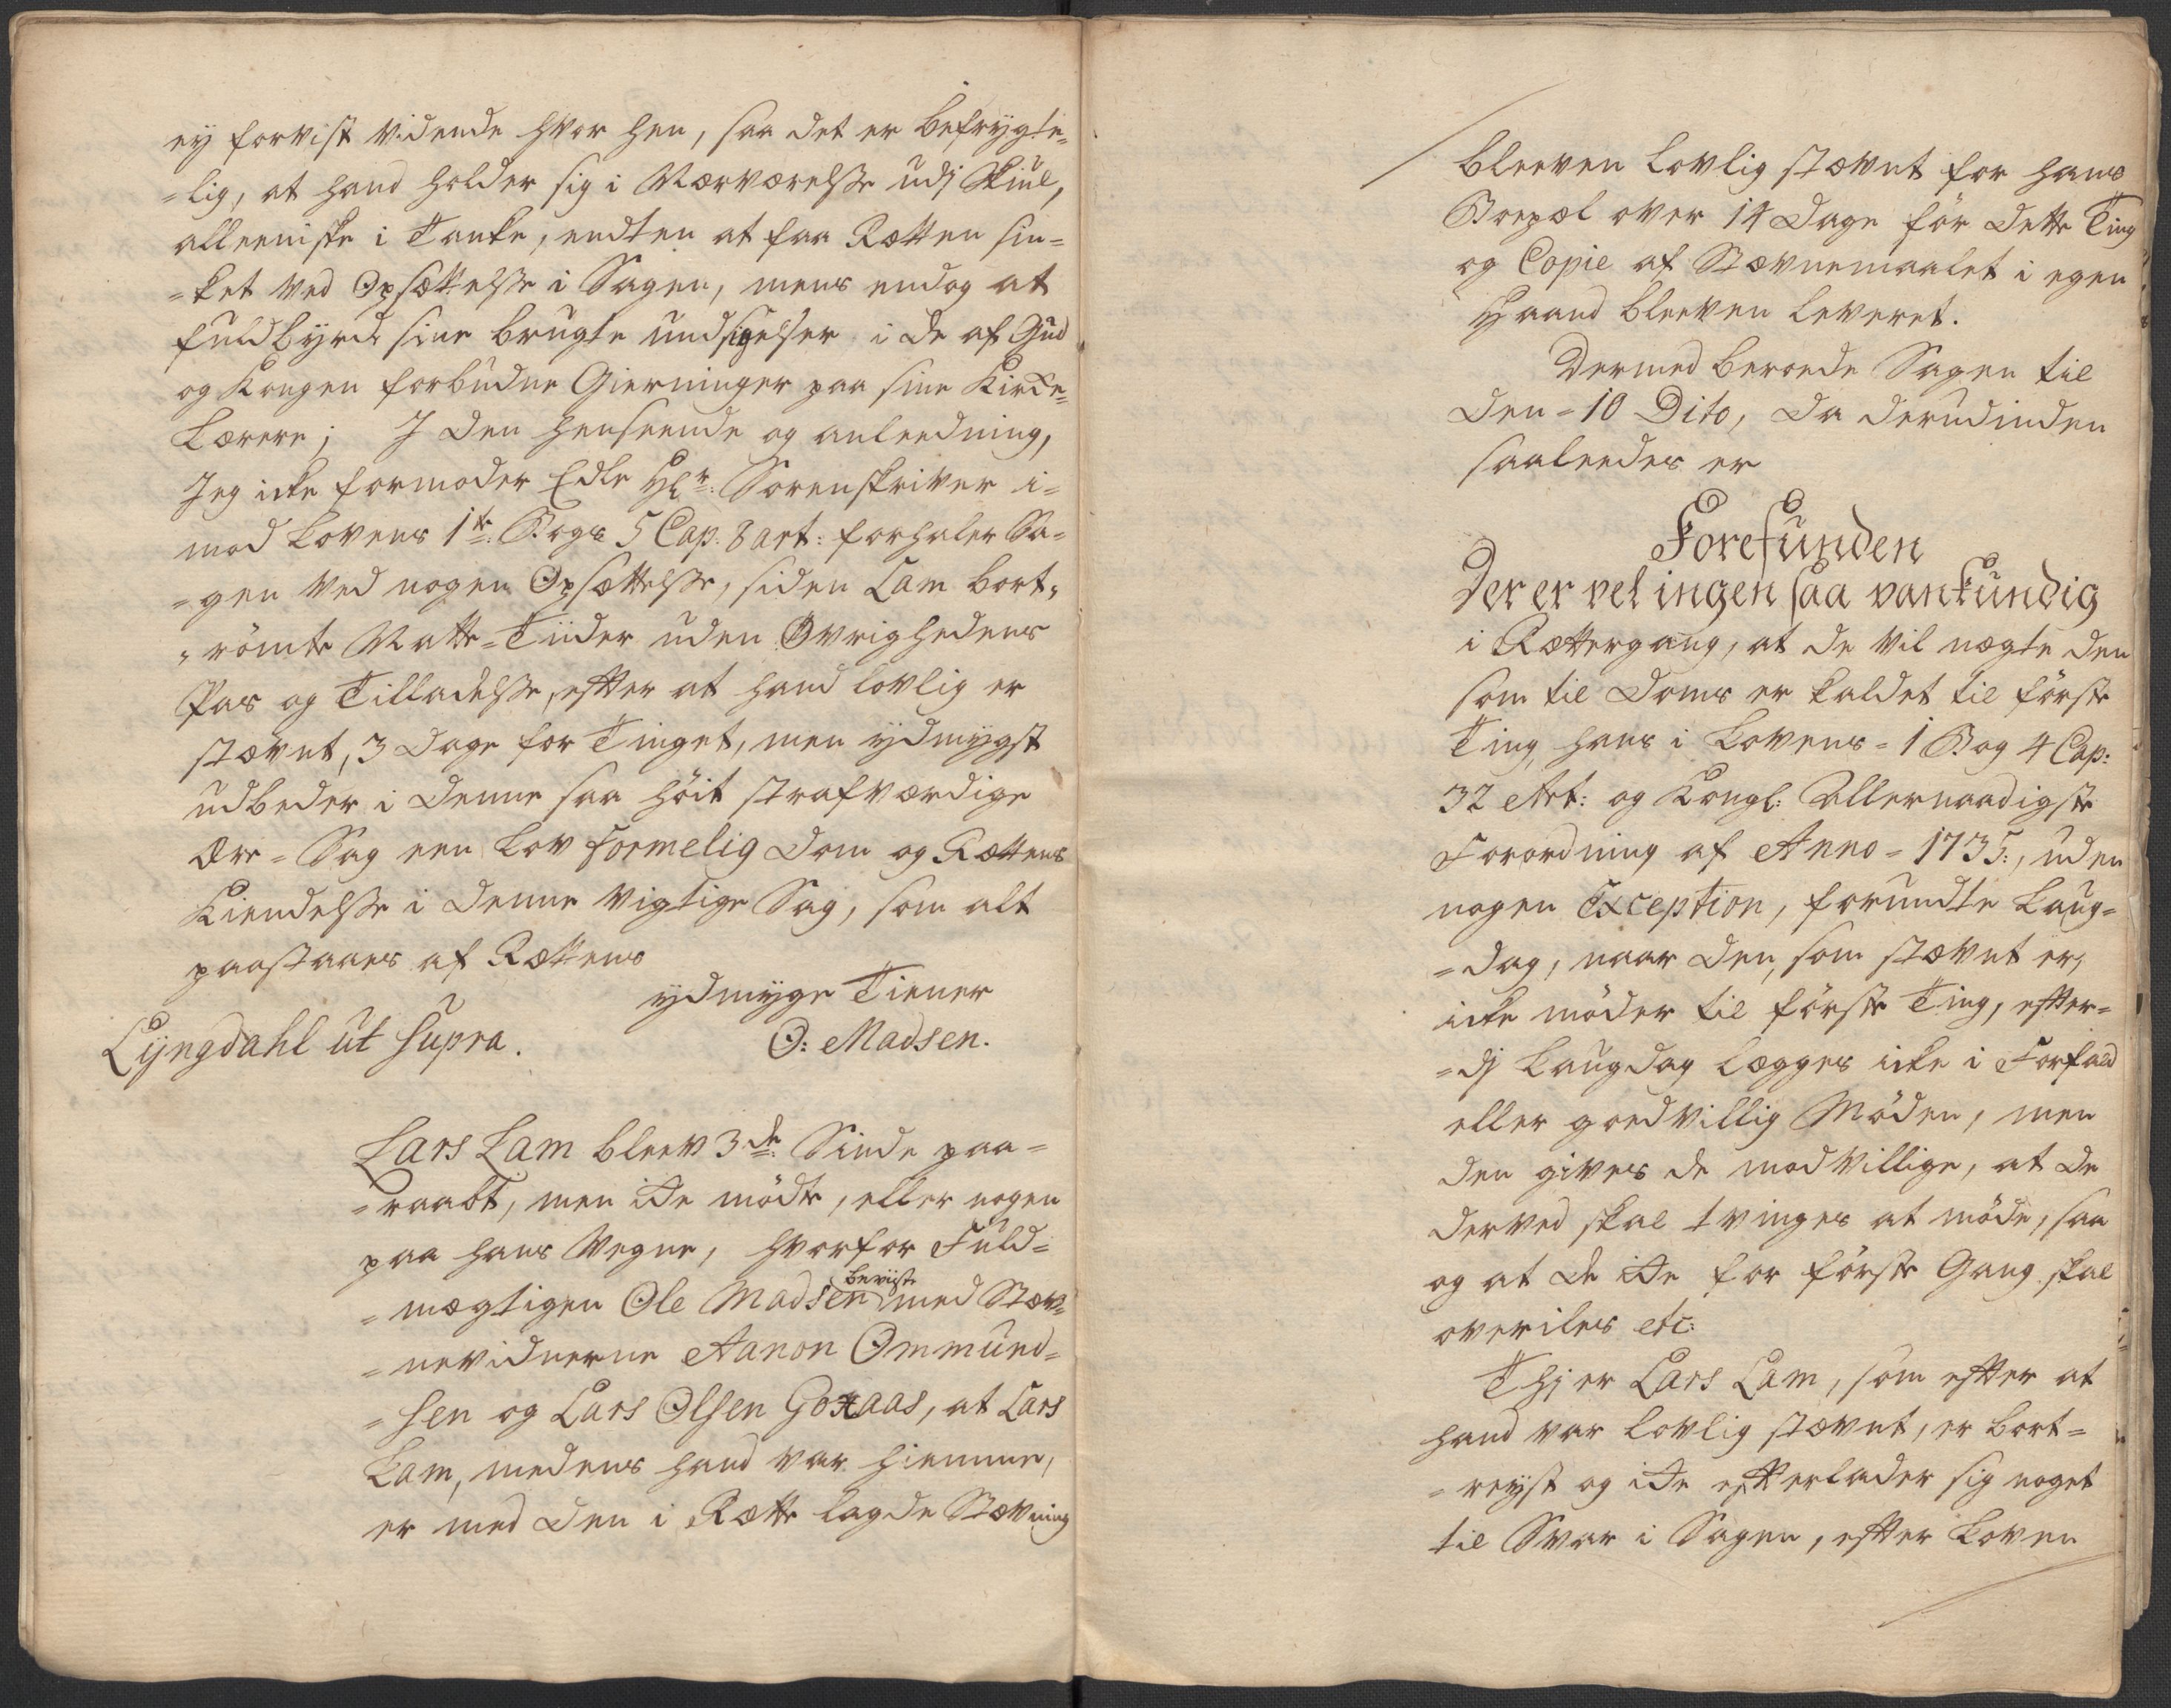 ey forvist vidende hvor hen, saa det er befrygte-
=lig, at hand holder sig i Nærværelsse udj Skiul,
alleeniste i Tanke, endten at faa Rætten sin-
=ket ved Opsættelsse i Sagen, mens endog at
fuldbyrde sine brugte undsigelser i de af Gud
og Kongen forbudne Gierninger paa sine Kircke-
Lærere; I den henseende og anleedning,
Jeg icke formoder Edle Hr: Sorenskriver i-
mod Lovens 1te: Bogs 5 Cap: 8 art: forhaler Sa-
=gen ved nogen Opsættelsse, siden Lam bort-
=römte Natte-Tiider uden Øvrighedens
Pas og Tilladelsse, efter at hand lovlig er
stævnt, 3 Dage for Tinget, men ydmygst
udbeder i denne saa höit strafværdige
Ære-Sag een Lov formelig Dom og Rættens
Kiendelsse i denne vigtige Sag, som alt
paastaaes af Rættens
ydmyge Tiener
Lyngdahl ut supra. O: Madsen.
Lars Lam bleev 3de: Sinde paa-
=raabt, men icke mödte, eller nogen
paa hans Vegne, hvorfor Fuld-
beviiste
=mægtigen Ole Madsen med Stæv-
=nevidnerne Aanon Ommund-
=sen og Lars Olsen Gotaas, at Lars
Lam, medens hand var hiemme,
er med den i Rætte lagde Stævning
bleeven lovlig stævnt for hans
Boepæl over 14 Dage för dette Ting
og Copie af Stævnemaalet i egen
Haand bleeven leveret.
Dermed beroede Sagen til
den =10 Dito, da derudinden
saaleedes er
Forefunden
Der er vel ingen saa vankundig
i Rættergang, at de vil nægte den
som til Doms er kaldet til förste
Ting, hans i Lovens =1 Bog 4 Cap:
32 Art: og Kongl: Allernaadigste
Forordning af Anno =1735:, uden
nogen Exception, forundte Laug-
=dag, naar den, som stævnt er,
icke möder til förste Ting, efter-
=dj Laugdag lægges icke i Forfald
eller goedvillig Möden, men
den gives de modvillige, at de
derved skal tvinges at möde, saa
og at de icke for förste Gang skal
overiles etc:
Thj er Lars Lam, som efter at
hand var lovlig stævnt, er bort-
=reyst og icke efterlader sig noget
til Svar i Sagen, efter Loven